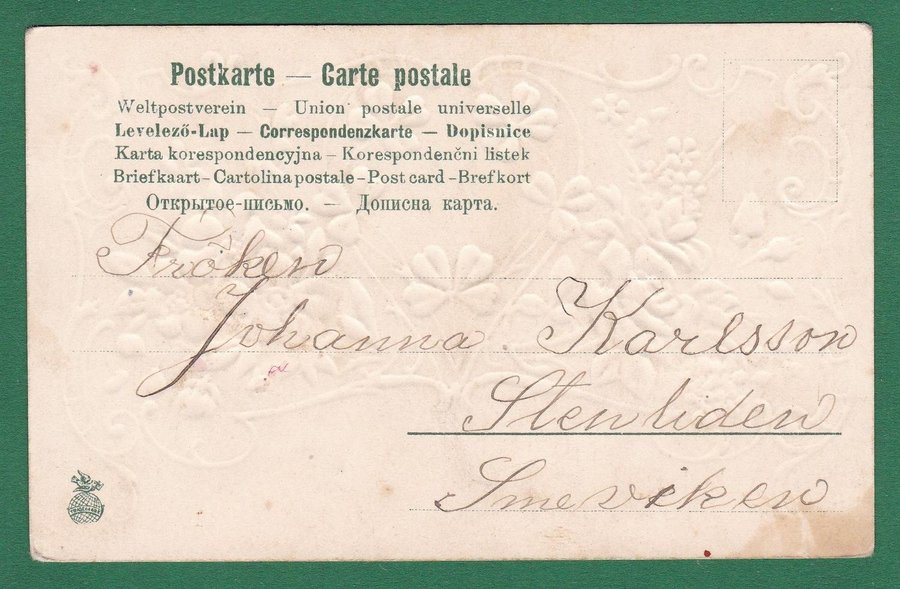 Postkarte — Carte postale
Weltpostverein — Union postale universelle
Levelező-Lap — Correspondenzkarte — Dopisnice
Karta korespondencyjna – Korespondenčni listek
Briefkaart – Cartolina postale – Post card – Brefkort
Открытое-письмо. — Дописна карта.
Fröken
Johanna Karlsson
Stenliden
Smeviken